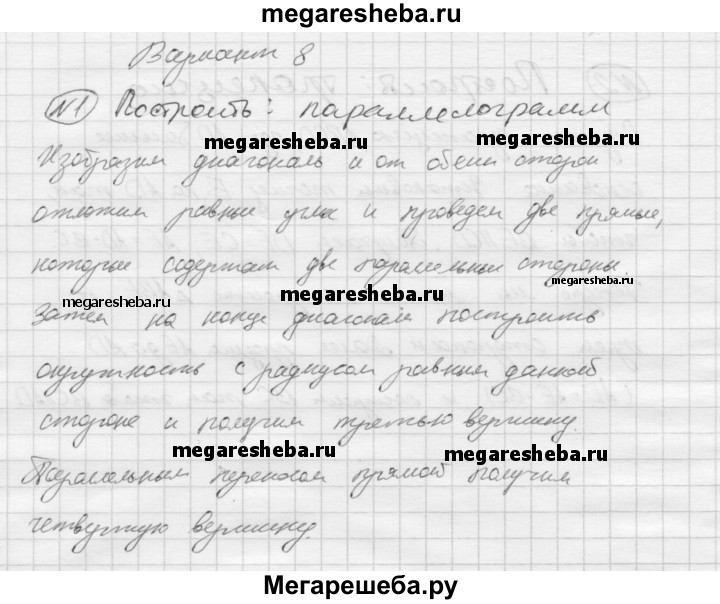 megaresheba.ru
Вариант 8
№1 Построить: параллелограмм
megaresheba.ru megaresheba.ru
Изобразим диагональ и от обеих сторон
отложим равные углы и проведем две прямые,
которые содержат две паралельные стороны.
megaresheba.ru megaresheba.ru megaresheba.ru
Затем на конце диагонали построить
окружность с радиусом равным данной
стороне и получим третью вершину.
megaresheba.ru megaresheba.ru
Паралельным переносом прямой получим
четвертую вершину.
Мегарешеба.ру